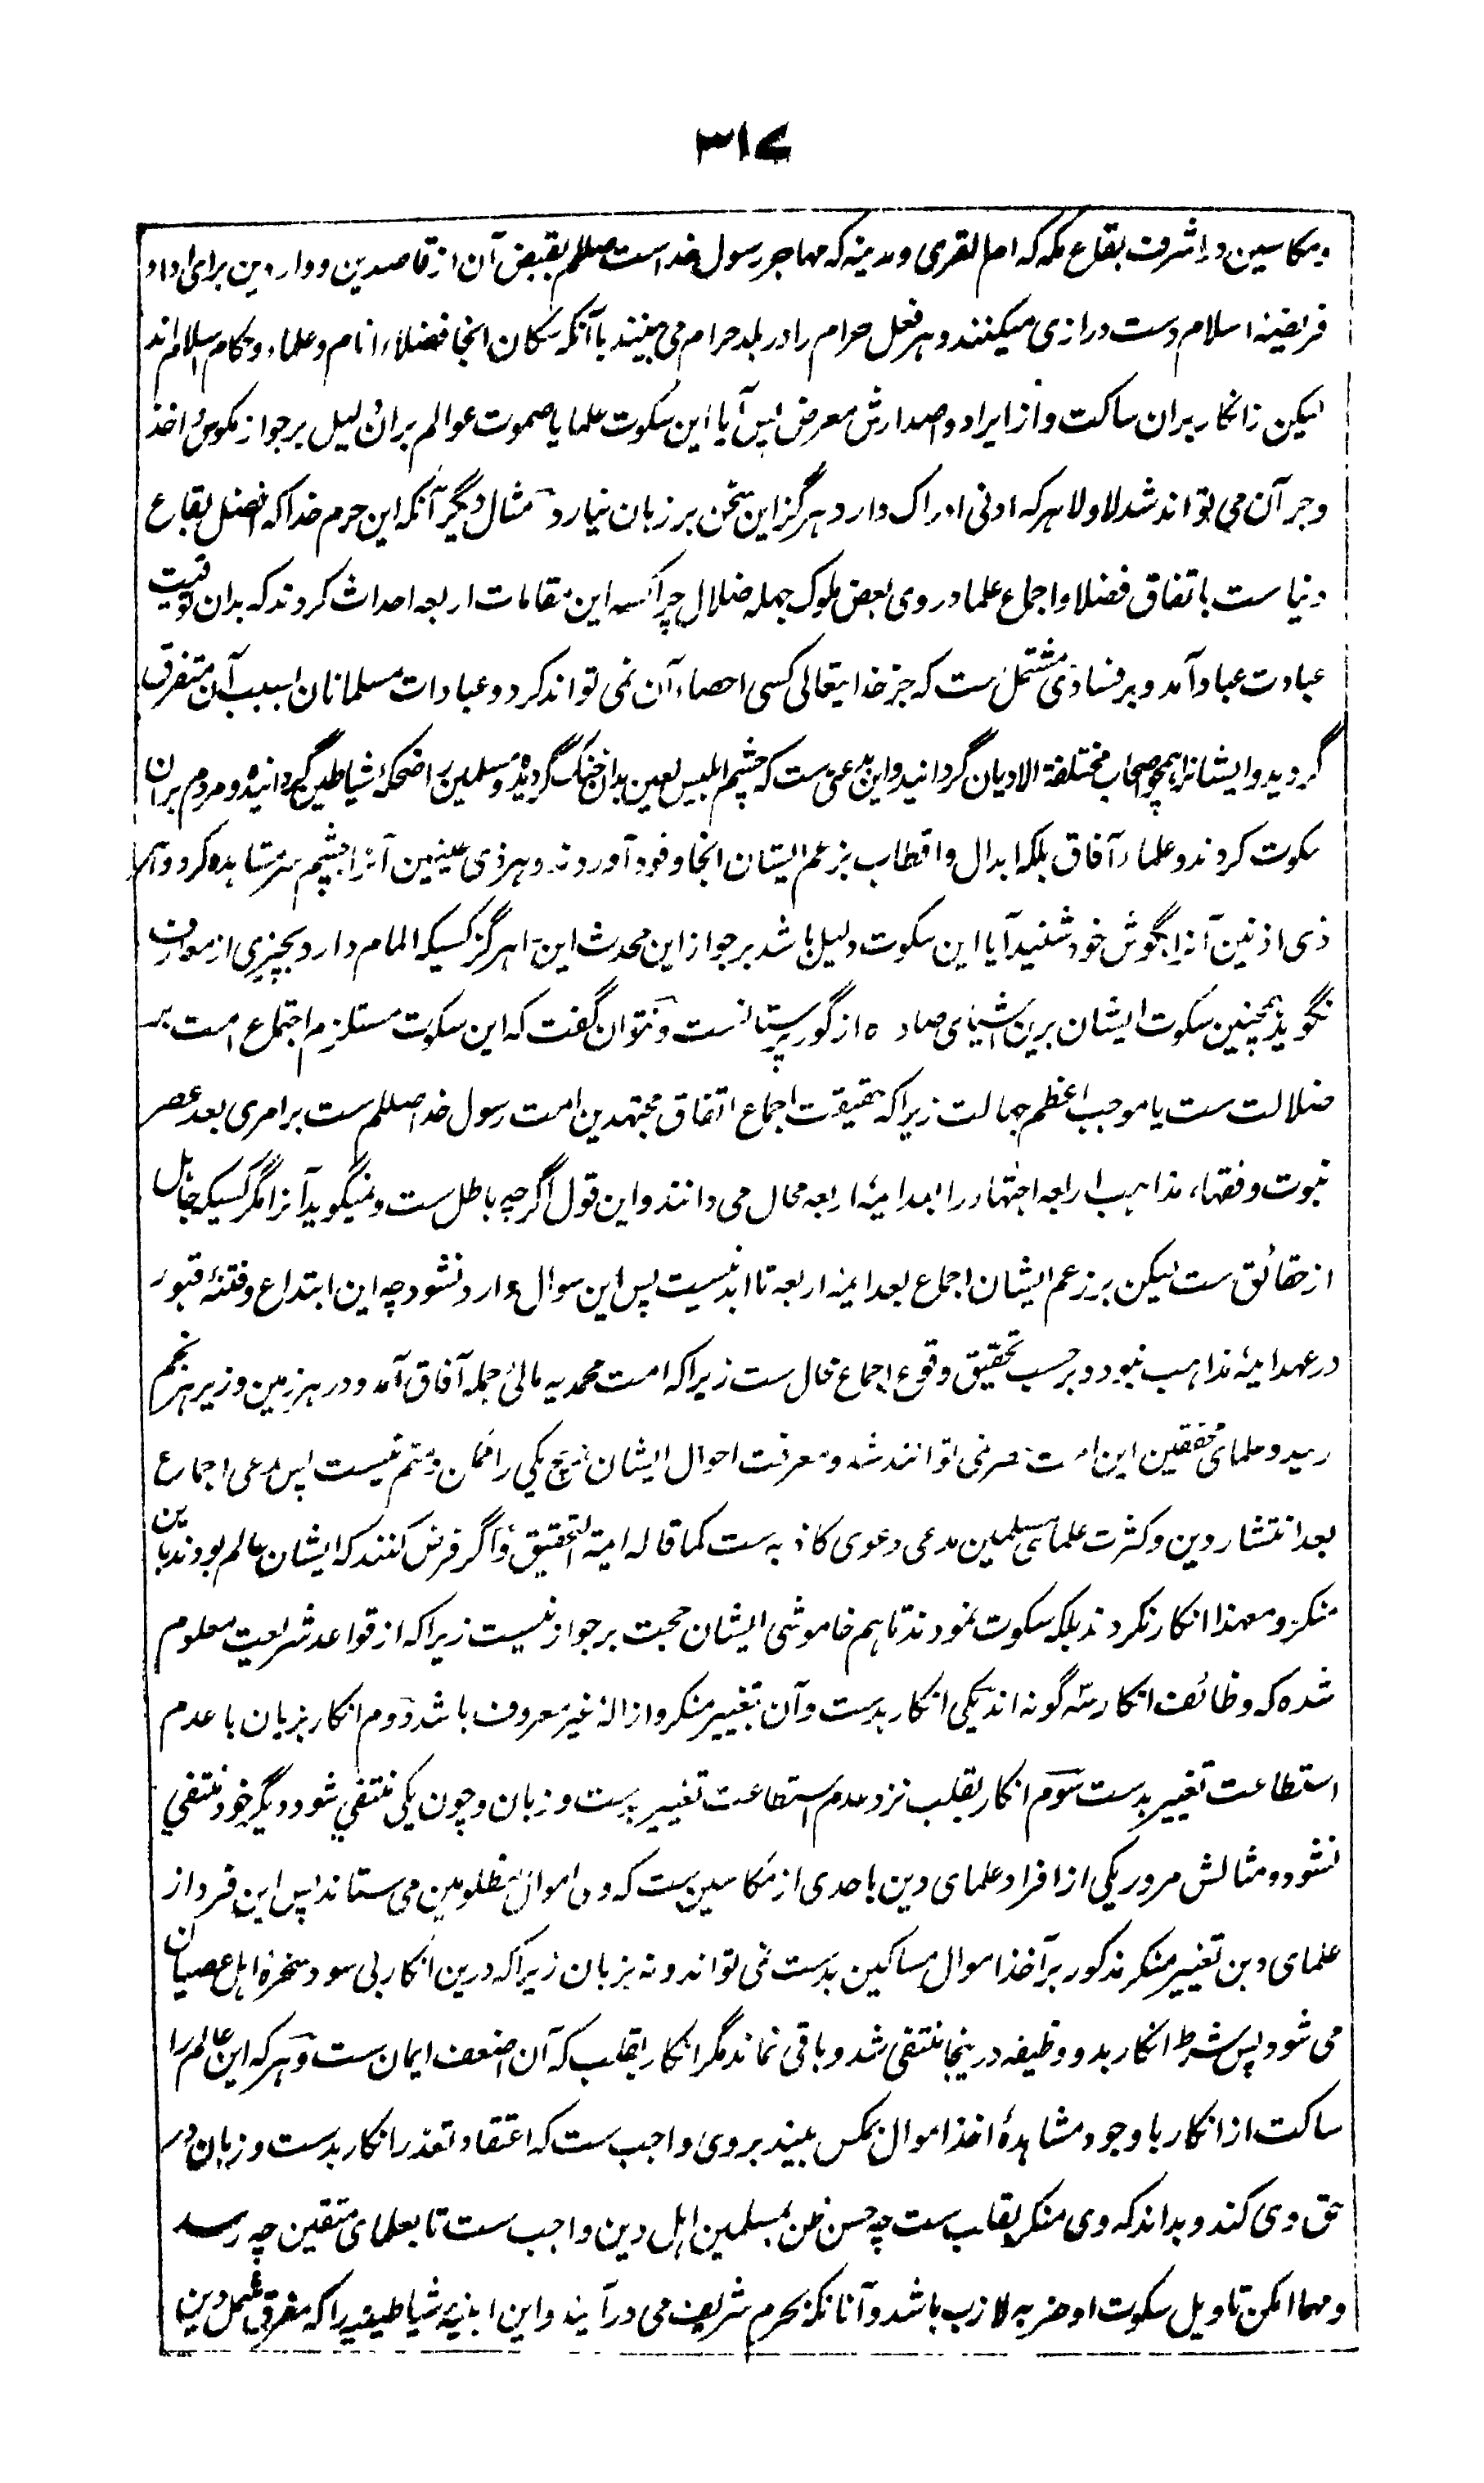 ۳۱۷
ومکاسین در اشرف بقاع مکه که ام القری ومدینه که مهاجر رسول خداست صللم بقبض آن از قاصدین وواردین برای اداء
فریضۀ اسلام دست درازی میکنند وهر فعل حرام را در بلد حرام می بینند با آنکه سکان انجا فضلاء انام وعلماء وحکام اسلام اند
لیکن از انکار بران ساکت واز ایراد واصدارش معرض پس آیا این سکوت علما یا صموت عوالم بران دلیل بر جواز مکوس واخذ
وجر آن می تواند شد لا ولا هر که ادنی ادراک دارد هرگز این سخن بر زبان نیارد مثال دیگر آنکه این حرم خدا که افضل بقاع
دنیاست باتفاق فضلا واجماع علما در وی بعض ملوک جهله ضلال چراکسه این مقامات اربعه احداث کردند که بدان تفریق
عبادت عباد آمد وبر فسادی مشتمل ست که جز خدایتعالی کسی احصاء آن نمی تواند کرد وعبادات مسلمانان بسبب آن متفرق
گردید وایشانرا همچو اصحاب مختلفة الادیان گردانید واین بدعتی ست که چشم ابلیس لعین بدان خنک گردیده ومسلمین را ضحکۀ شیاطین گردانیده ومردم بران
سکوت کردند وعلماء آفاق بلکه ابدال واقطاب بزعم ایشان انجا وفود آوردند وهر ذی عینین آنرا بچشم سر مشاهده کرد وهر
ذی اذنین آنرا بگوش خود شنید آیا این سکوت دلیل باشد بر جواز این محدث این را هرگز کسیکه المام دارد بچیزی از معارف
نگوید همچنین سکوت ایشان برین اشیای صادره از گور پرستانست ونتوان گفت که این سکوت مستلزم اجتماع امت بر
ضلالت ست یا موجب اعظم جهالت زیراکه حقیقت اجماع اتفاق مجتهدین امت رسول خدا صللم ست بر امری بعد عصر
نبوت وفقهاء مذاهب اربعه اجتهاد را بعد ایمۀ اربعه محال می دانند واین قول اگرچه باطل ست ونمیگوید آنرا مگر کسیکه جاهل
از حقائق ست لیکن بر زعم ایشان اجماع بعد ایمۀ اربعه تا ابد نیست پس این سوال وارد نشود چه این ابتداع وفتنۀ قبور
در عهد ایمۀ مذاهب نبود وبر حسب تحقیق وقوع اجماع محال ست زیراکه امت محمدیه مالئ جمله آفاق آمد ودر هر زمین وزیر هر نجم
رسید وعلمای محققین این امت حصر نمی توانند شد ومعرفت احوال ایشان هیچ یکی را ممکن ومتم نیست پس مدعی اجماع
بعد انتشار دین وکثرت علمای مسلمین مدعی دعوی کاذبه ست کما قاله ایمة التحقیق واگر فرض کنند که ایشان عالم بودند باین
منکر ومعهذا انکار نکردند بلکه سکوت نمودند تاهم خاموشی ایشان حجت بر جواز نیست زیراکه از قواعد شریعت معلوم
شده که وظائف انکار سه گونه اند یکی انکار بدست وآن بتغییر منکر وازالۀ غیر معروف باشد دوم انکار بزبان با عدم
استطاعت تغییر بدست سوم انکار بقلب نزد عدم استطاعت تغییر بدست وزبان وچون یکی منتفی شود دیگر خود منتفی
نشود ومثالش مرور یکی از افراد علمای دین باحدی از مکاسین ست که وی اموال مظلومین می ستاند پس این فرد از
علمای دین تغییر منکر مذکور بر آخذ اموال مساکین بدست نمی تواند ونه بزبان زیراکه درین انکار بی سود سخرۀ اهل عصیان
می شود پس شرط انکار بدو وظیفه درینجا منتفی شد وباقی نماند مگر انکار بقلب که آن اضعف ایمان ست وهر که این عالم را
ساکت از انکار با وجود مشاهدۀ اخذ اموال بمکس بیند بروی واجب ست که اعتقاد تعذر انکار بدست وزبان در
حق وی کند وبداند که وی منکر بقلب ست چه حسن ظن بمسلمین اهل دین واجب ست تا بعلمای متقین چه رسد
ومهما امکن تاویل سکوت او ضربه لازب باشد وآنانکه بحرم شریف می درآیند واین ابنیۀ شیاطینیه را که مفرق شمل دین